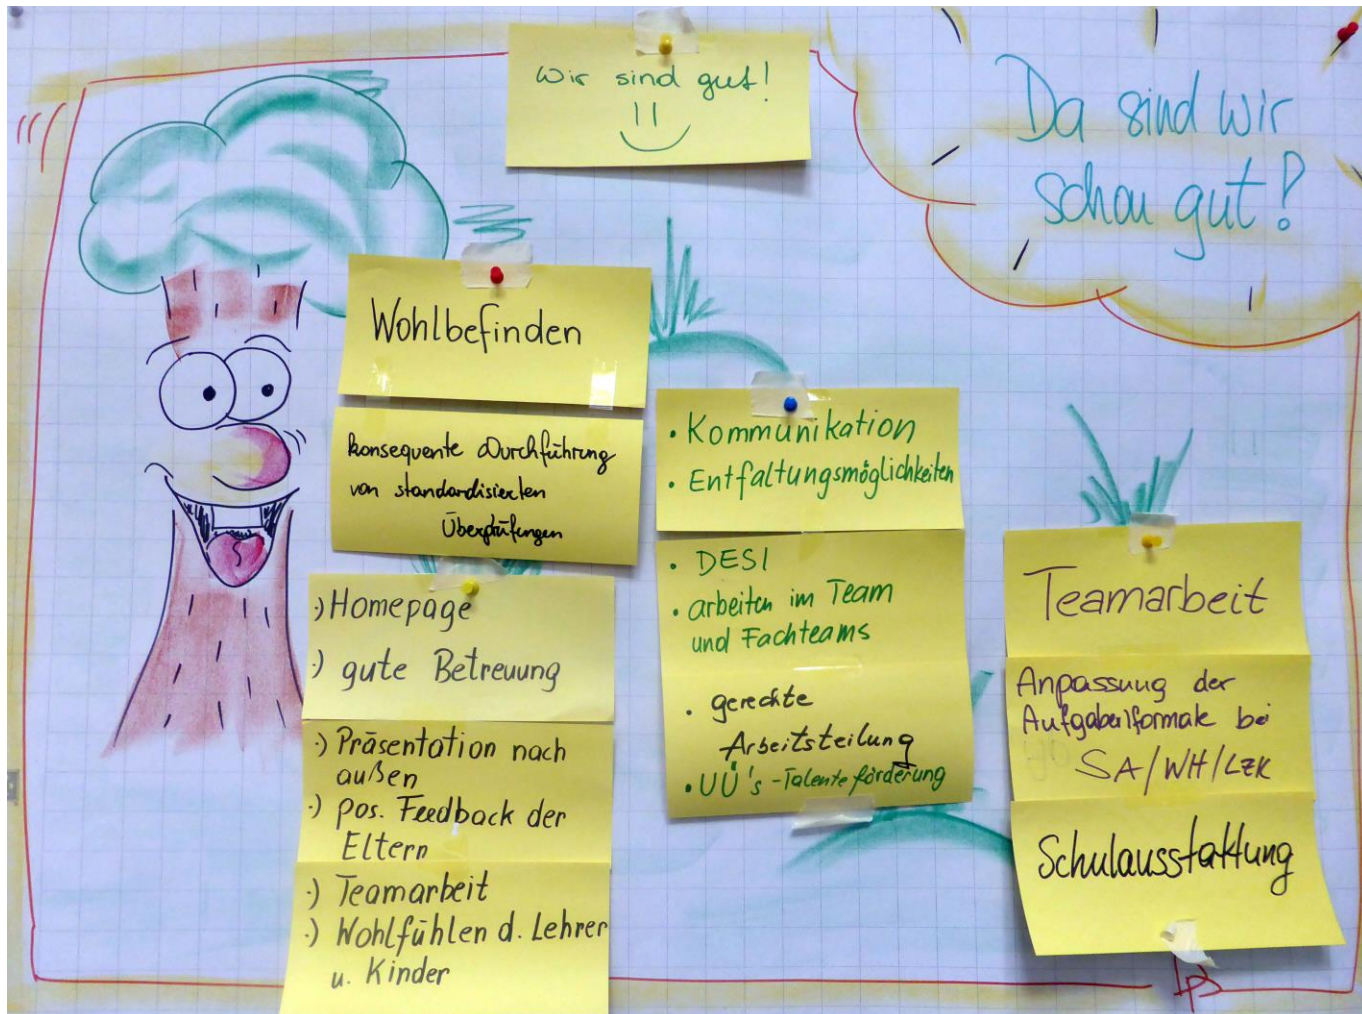 Wir sind gut!
Da sind wir
schon gut!
Wohlbefinden
konsequente Durchführung
von standardisierten
Überprüfungen
·) Homepage
·) gute Betreuung
·) Präsentation nach
außen
·) pos. Feedback der
Eltern
·) Teamarbeit
·) Wohlfühlen d. Lehrer
u. Kinder
• Kommunikation
• Entfaltungsmöglichkeiten
• DESI
• arbeiten im Team
und Fachteams
• gerechte
Arbeitsteilung
• UÜ's - Talenteförderung
Teamarbeit
Anpassung der
Aufgabenformate bei
SA/WH/LZK
Schulausstattung